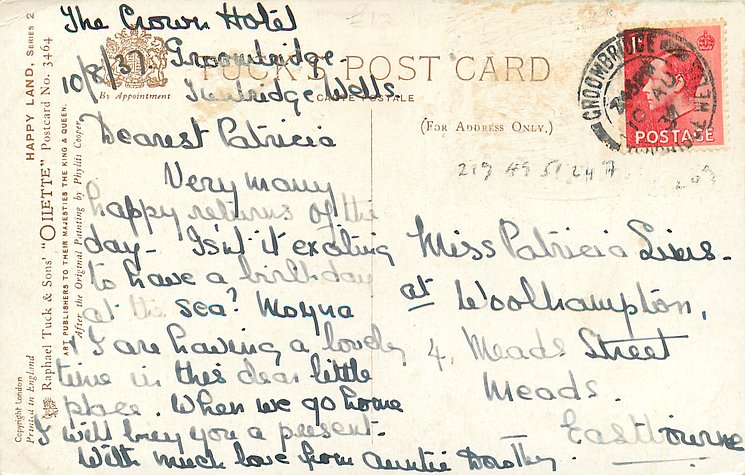 The Crown Hotel
Groombridge
Tunbridge Wells.
10/8/37
By Appointment
TUCK'S POST CARD
CARTE POSTALE
(FOR ADDRESS ONLY.)
GROOMBRIDGE
POSTAGE
Dearest Patricia
Very many
happy returns of the
day - Isn't it exciting
to have a birthday
at the sea? Moyna
& I are having a lovely
time in this dear little
place. When we go home
I will buy you a present.
With much love from Auntie Dorothy.
Miss Patricia Sims -
at Woolhampton,
4, Meads Street
Meads.
Eastbourne
HAPPY LAND, SERIES 2
Raphael Tuck & Sons' "OILETTE" Postcard No. 3464
ART PUBLISHERS TO THEIR MAJESTIES THE KING & QUEEN.
After the Original Painting by Phyllis Cooper
Copyright London
Printed in England